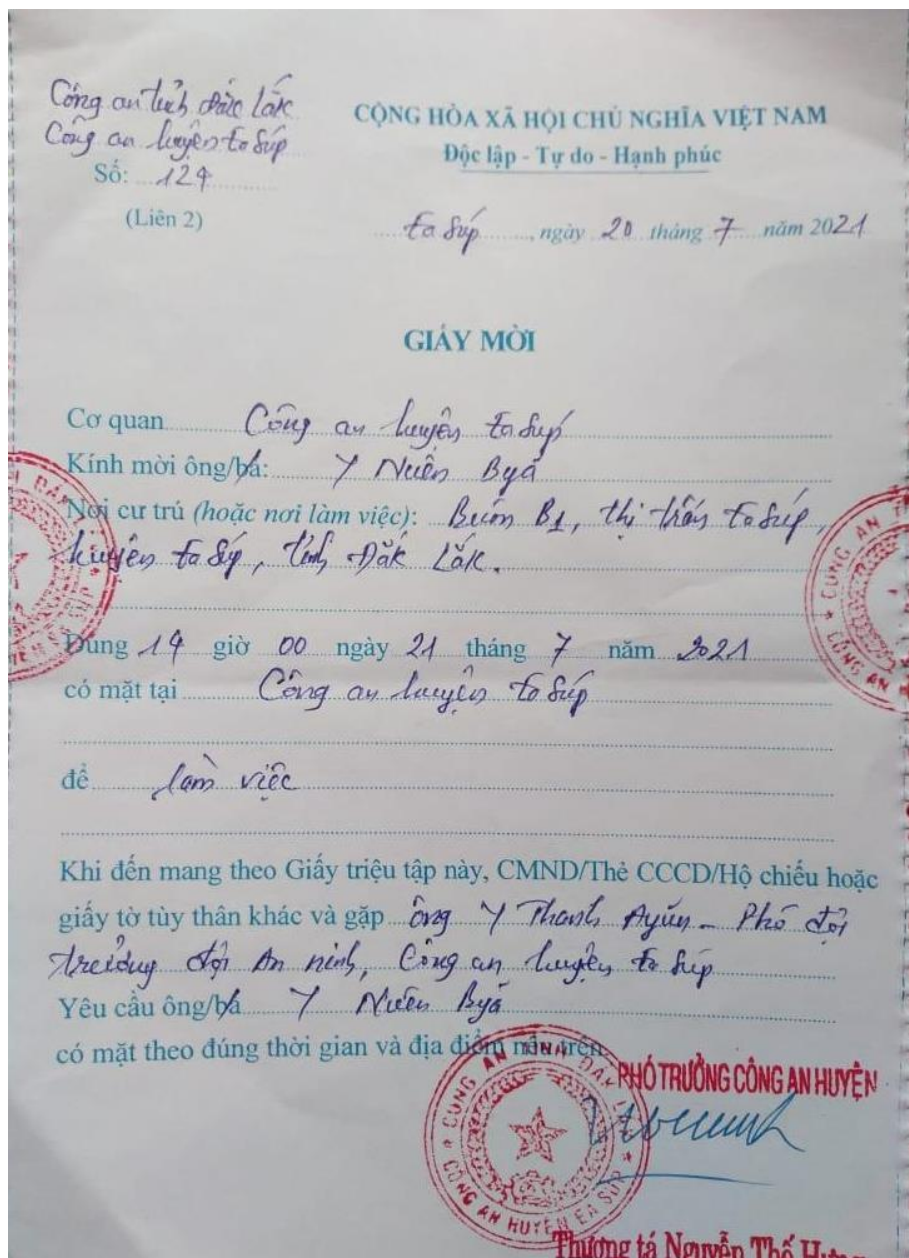 Công an tỉnh Đăk Lăk
Công an huyện Ea Súp
Số: 124
(Liên 2)
CỘNG HÒA XÃ HỘI CHỦ NGHĨA VIỆT NAM
Độc lập - Tự do - Hạnh phúc
Ea Súp, ngày 20 tháng 7 năm 2021
GIẤY MỜI
Cơ quan Công an huyện Ea Súp
Kính mời ông/bà: Y Nuên Byă
Nơi cư trú (hoặc nơi làm việc): Buôn B1, thị trấn Ea Súp,
huyện Ea Súp, tỉnh Đăk Lăk.
Đúng 14 giờ 00 ngày 21 tháng 7 năm 2021
có mặt tại Công an huyện Ea Súp
để làm việc
Khi đến mang theo Giấy triệu tập này, CMND/Thẻ CCCD/Hộ chiếu hoặc
giấy tờ tùy thân khác và gặp ông Y Thanh Ayŭn - Phó đội
trưởng đội An ninh, Công an huyện Ea Súp
Yêu cầu ông/bà Y Nuên Byă
có mặt theo đúng thời gian và địa điểm nêu trên
PHÓ TRƯỞNG CÔNG AN HUYỆN
CÔNG AN TỈNH ĐĂK
CÔNG AN HUYỆN EA SÚP
Thượng tá Nguyễn Thế Hưng